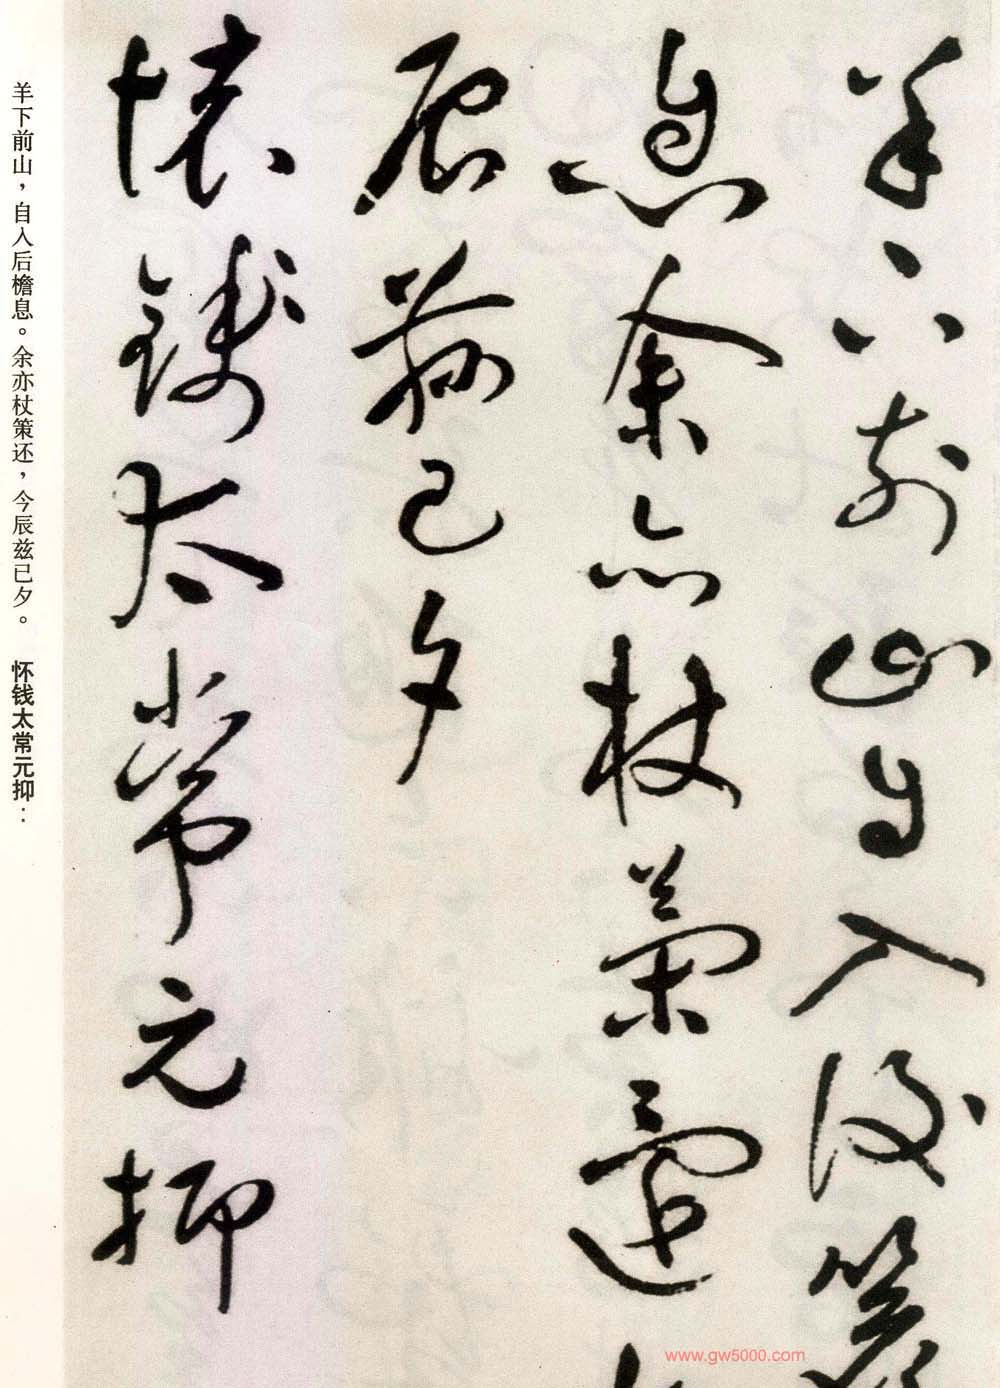 羊下前山自入後簷
息余亦杖策還
辰兹已夕
懷錢太常元抑
羊下前山，自入后檐息。余亦杖策还，今辰兹已夕。 怀钱太常元抑：
www.gw5000.com